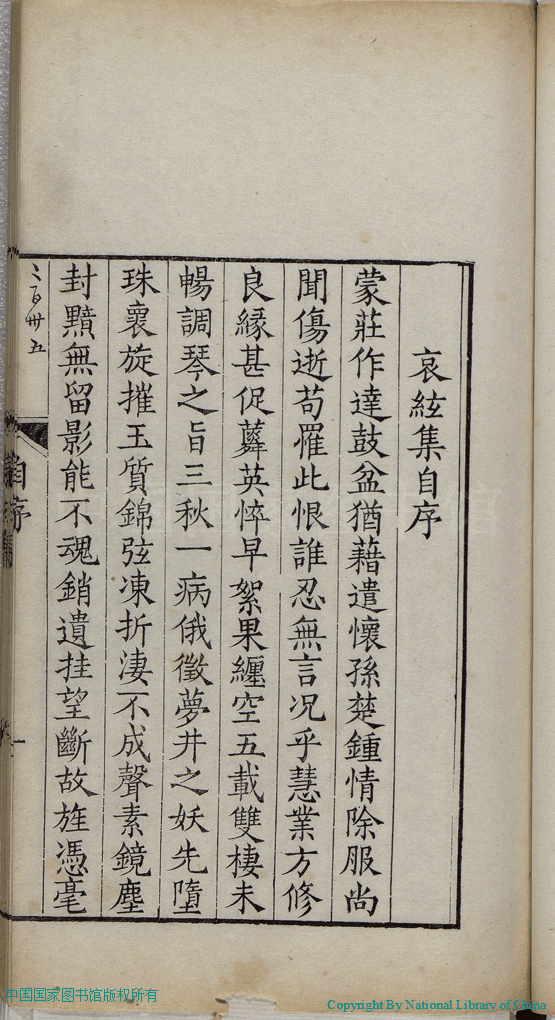 哀絃集自序
蒙莊作達鼓盆猶藉遣懷孫楚鍾情除服尚
聞傷逝苟罹此恨誰忍無言况乎慧業方修
良緣甚促蕣英悴早絮果纏空五載雙棲未
暢調琴之旨三秋一病俄徵夢井之妖先墮
珠褱旋摧玉質錦弦凍折淒不成聲素鏡塵
封黯無留影能不魂銷遺挂望斷故旌憑毫
自序
一
二百卅五
中国国家图书馆版权所有
Copyright By National Library of China